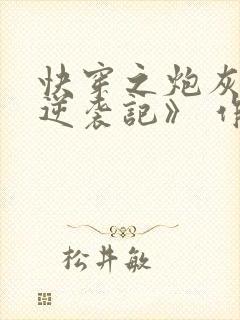 快穿之炮灰
逆袭記》 作
松井敏